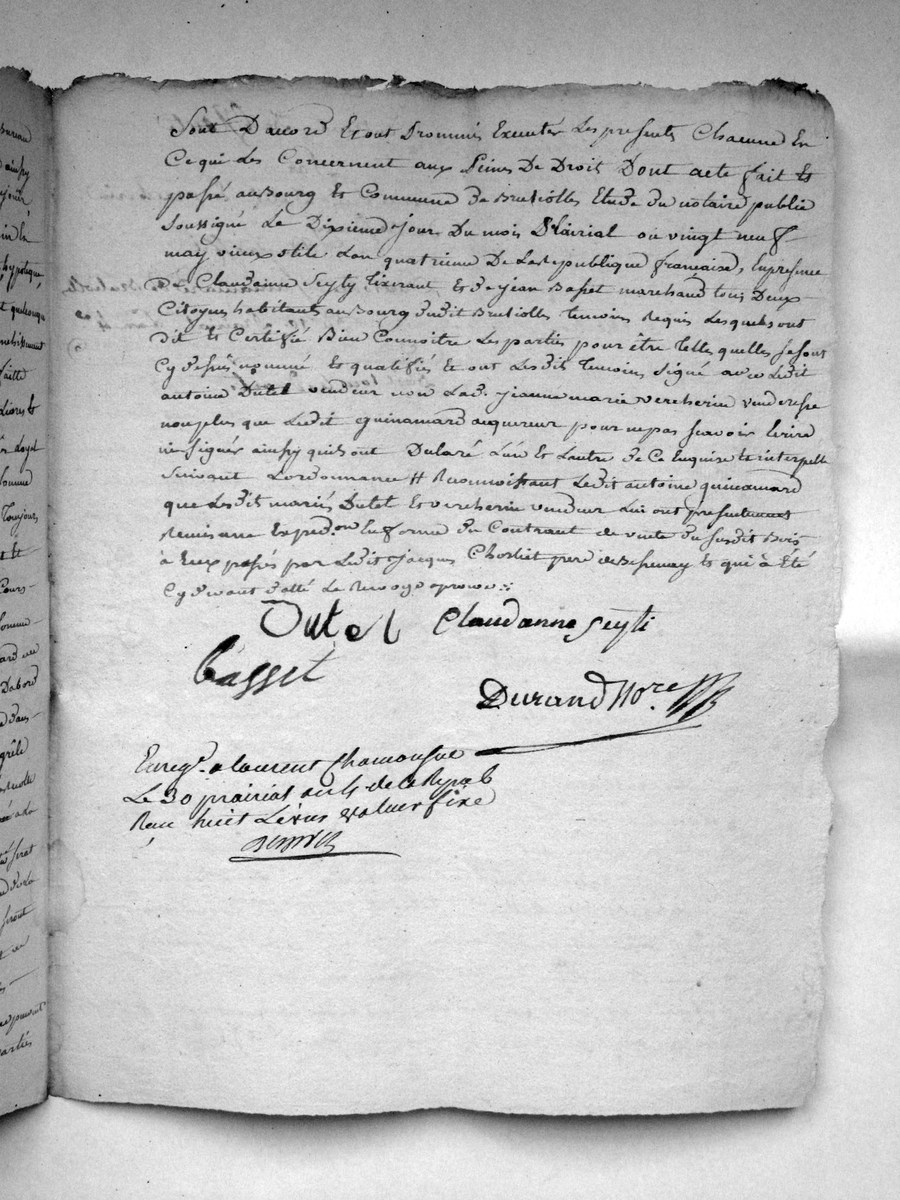 Sont Daccord Et ont Promis Executer Les presents Chacune En
Ce qui Les Concernent aux Peines De Droit Dont acte fait Et
passé au Bourg Et Commune de Brussiolles Etude du notaire public
Soussigné Le Dixieme Jour Du mois Prairial ou vingt neuf
may vieux stile Lan quatrieme De La republique francaise, En presence
De Claudanne Seyty tixerant Et de jean Basset marchand tous Deux
Citoyens habitants au Bourg dudit Brussiolles temoins Requis Lesquels ont
dit Et Certifié Bien Connoitre Les parties pour être telles quelles se sont
Cy dessus nommé Et qualifiés Et ont Lesdits temoins signé avec Ledit
antoine Dutel vendeur non Lad. jeanne marie vercherin venderesse
non plus que Ledit guinamard acquereur pour ne pas scavoir Ecrire
ni signer ainsy quils ont Declaré L'un Et Lautre de Ce Enquis Et interpellé
suivant Lordonnance # Reconnoissant Ledit antoine guinamard
que Lesdit mariés Dutel Et vercherin vendeur Lui ont presentement
Remis une Exped.on En forme du Contract de vente du susdit Bois
à Eux passés par Ledit Jacques pere de Bessenay Et qui à Été
Cy devant datté Le Renvoy aprouvé
Dutel Claudanne Seyti
Basset
Durand No.re
Enreg.é a laurent Chamousse
Le 30 prairial an 4 de la Repub
Recu huit Livres valeur fixe